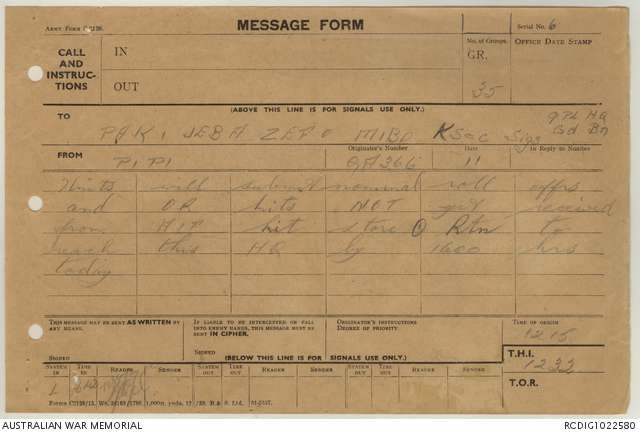 ARMY FORM C2128.
MESSAGE FORM
Serial No. 6
CALL AND INSTRUC-TIONS
IN
OUT
No. of Groups.
GR.
35
OFFICE DATE STAMP
(ABOVE THIS LINE IS FOR SIGNALS USE ONLY.)
TO
PAKI JEBA ZERO MIBO K Sec Sigs
Gd Bn
FROM
PIPI
Originator's Number
GA366
Date
11
In Reply to Number
Units will submit nominal roll offrs
and OR kits NOT yet received
from MIT kit store Rtn to
reach this HQ by 1600 hrs
today
THIS MESSAGE MAY BE SENT AS WRITTEN BY ANY MEANS.
IF LIABLE TO BE INTERCEPTED OR FALL INTO ENEMY HANDS, THIS MESSAGE MUST BE SENT IN CIPHER.
ORIGINATOR'S INSTRUCTIONS
DEGREE OF PRIORITY
TIME OF ORIGIN
1215
SIGNED
SIGNED
(BELOW THIS LINE IS FOR SIGNALS USE ONLY.)
T.H.I.
1222
SYSTEM IN
TIME IN
READER
SENDER
SYSTEM OUT
TIME OUT
READER
SENDER
SYSTEM OUT
TIME OUT
READER
SENDER
T.O.R.
L
AUSTRALIAN WAR MEMORIAL
RCDIG1022580